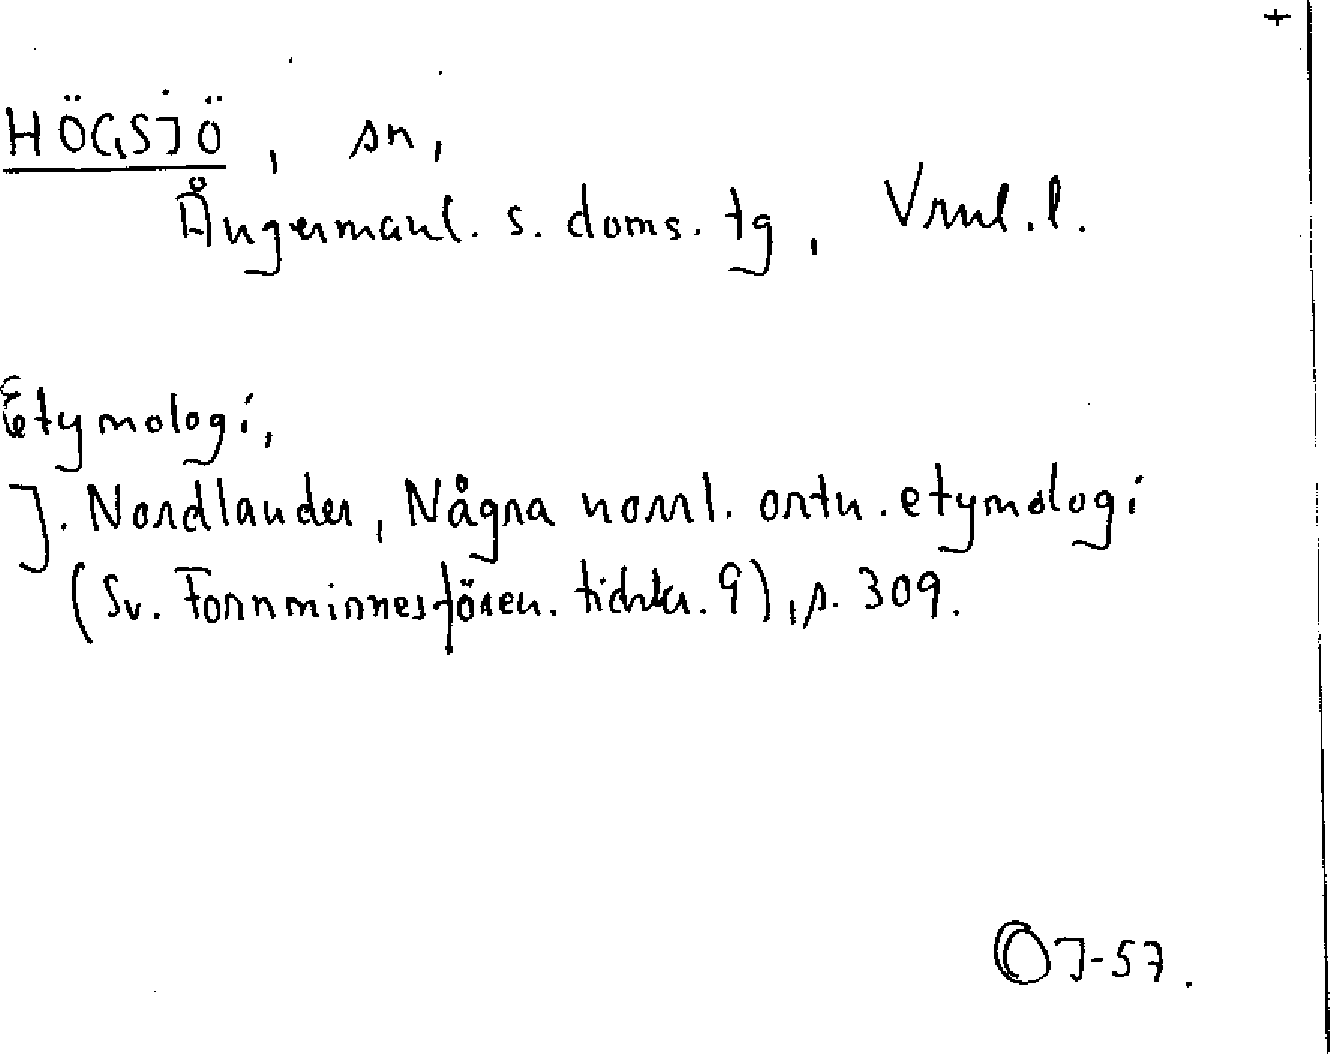 +
HÖGSJÖ, sn,
Ångermanl. s. doms. tg, Vrnl. l.
Etymologi,
J. Nordlander, Några norrl. ortn. etymologi
(Sv. Fornminnesfören. tidskr. 9), s. 309.
OJ-57.